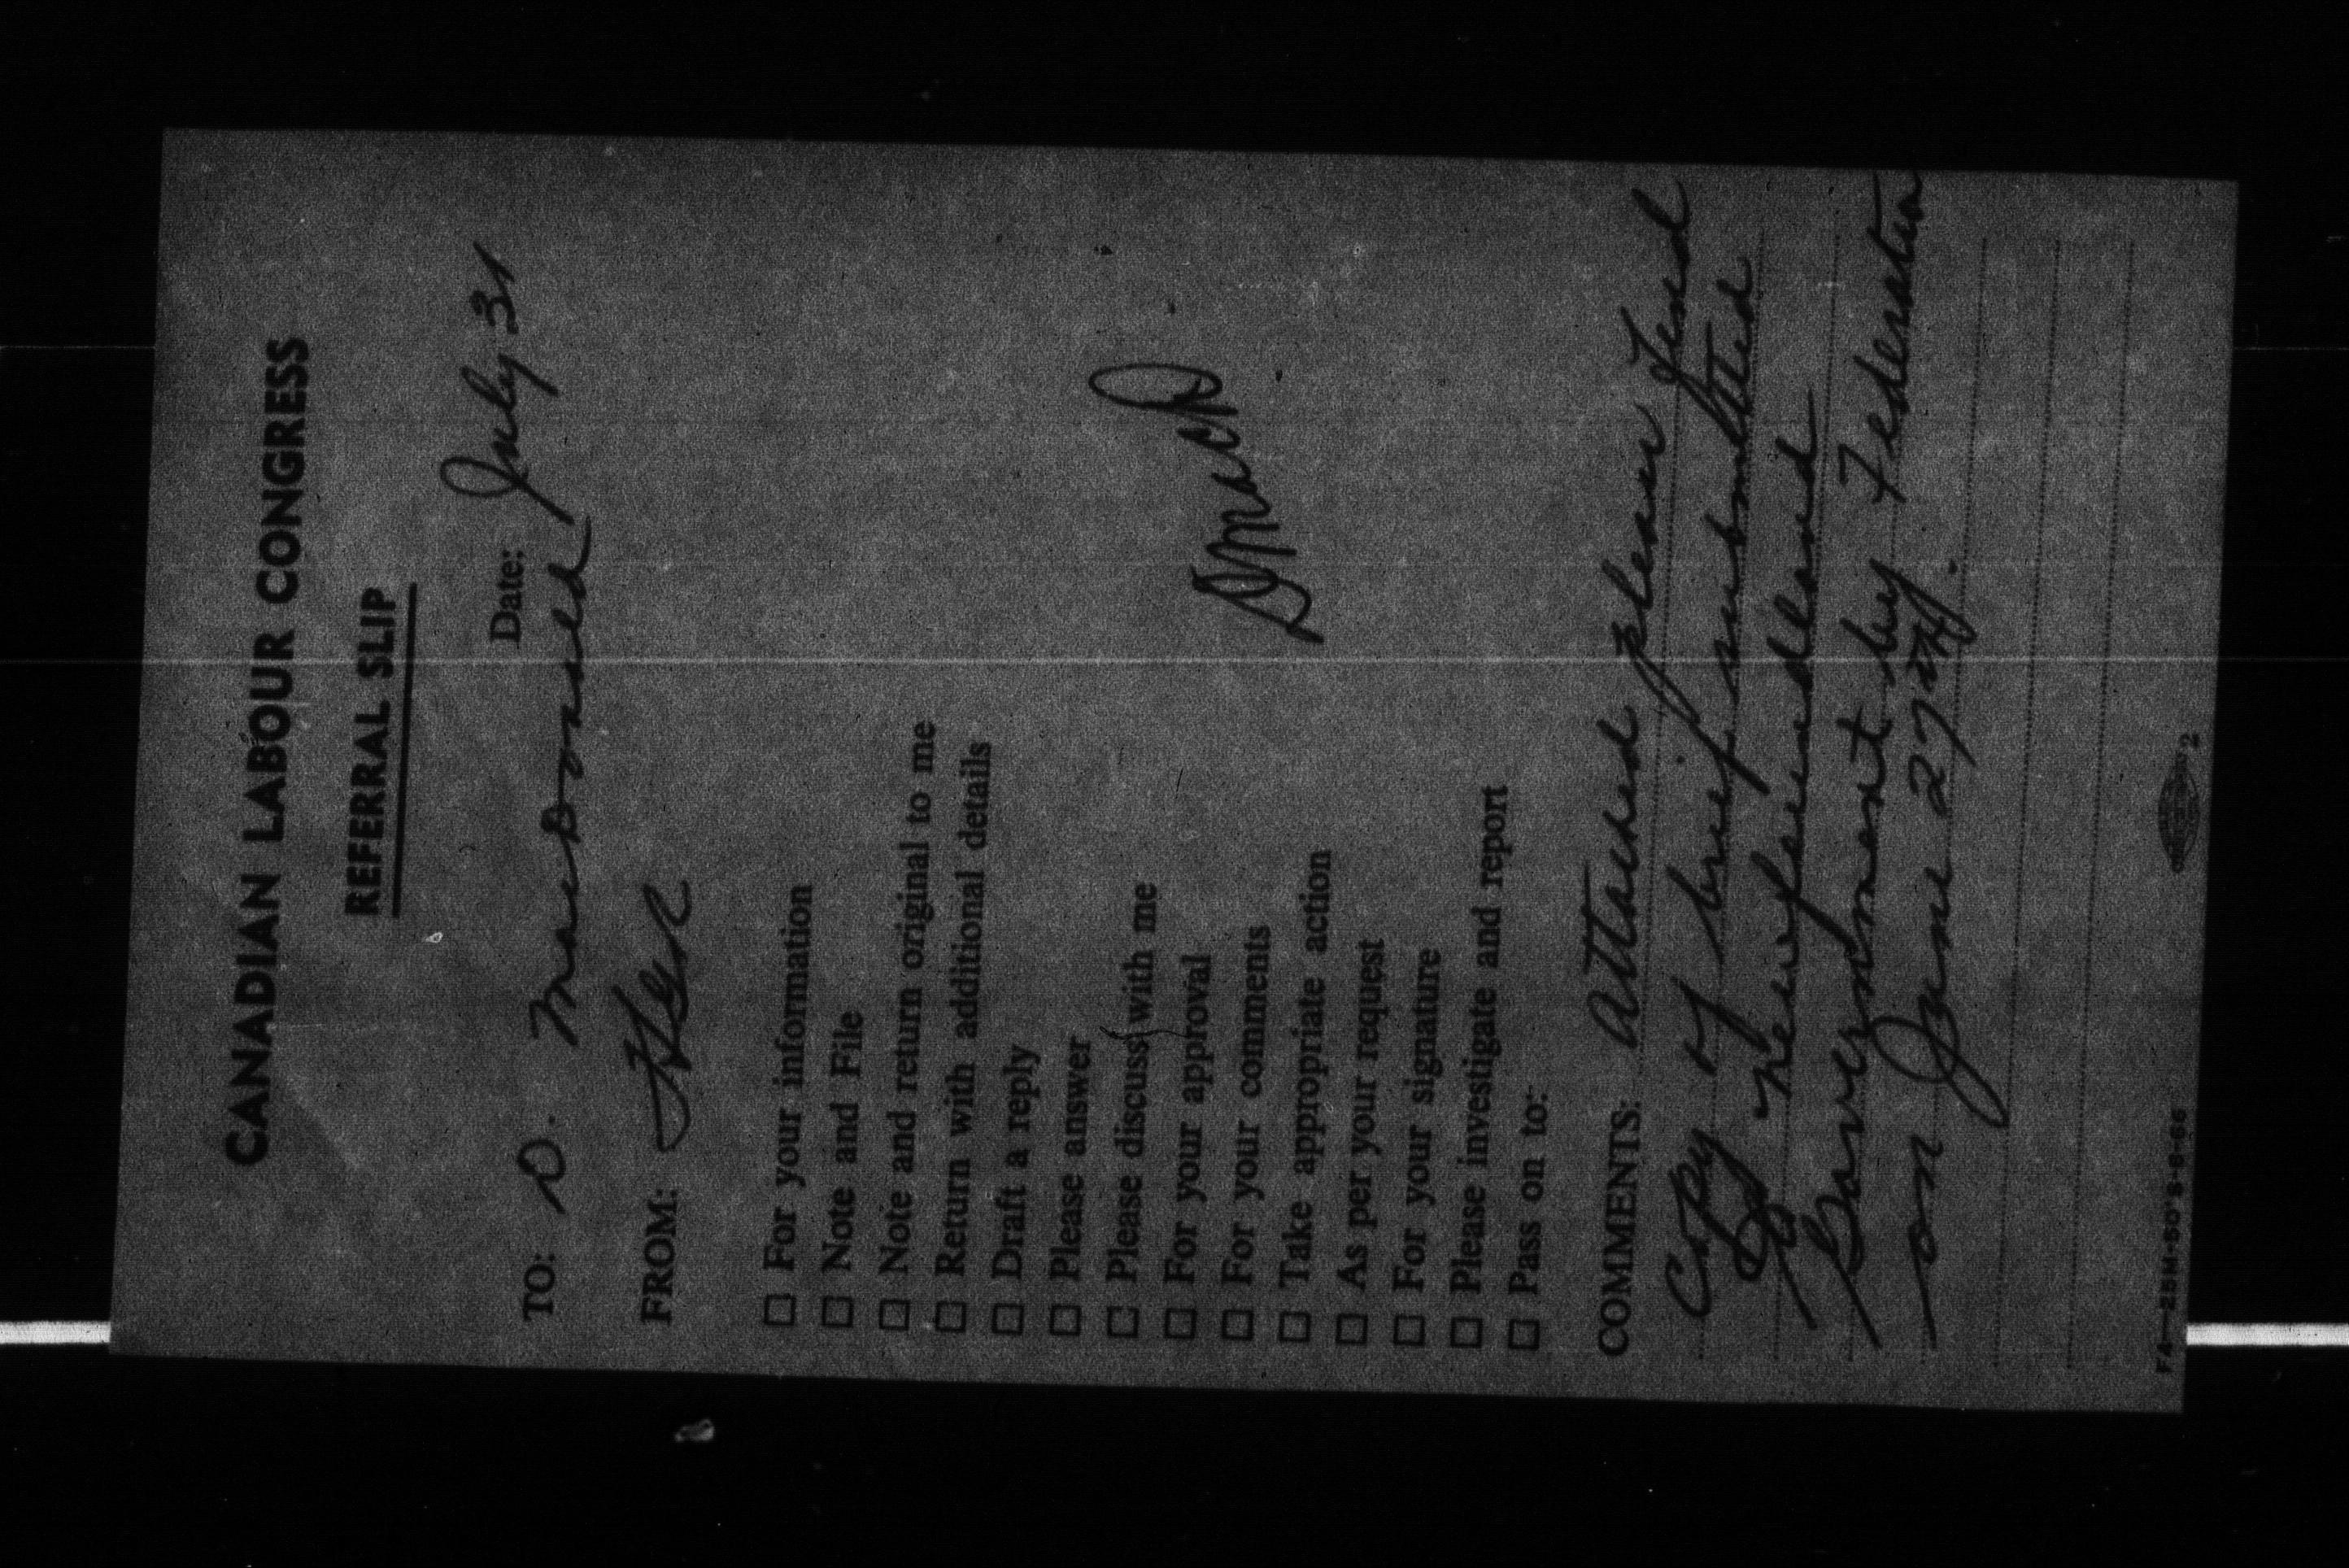 CANADIAN LABOUR CONGRESS
REFERRAL SLIP
Date: July 31
TO: D. MacDonald
FROM:
☐ For your information
☐ Note and File
☐ Note and return original to me
☐ Return with additional details
☐ Draft a reply
☐ Please answer
☐ Please discuss with me
☐ For your approval
☐ For your comments
☐ Take appropriate action
☐ As per your request
☐ For your signature
☐ Please investigate and report
☐ Pass on to:
DMacD
COMMENTS: Attached please find
copy of brief submitted
to Newfoundland
Government by Federation
on June 27th.
FA—25M-50'S-8-66
2